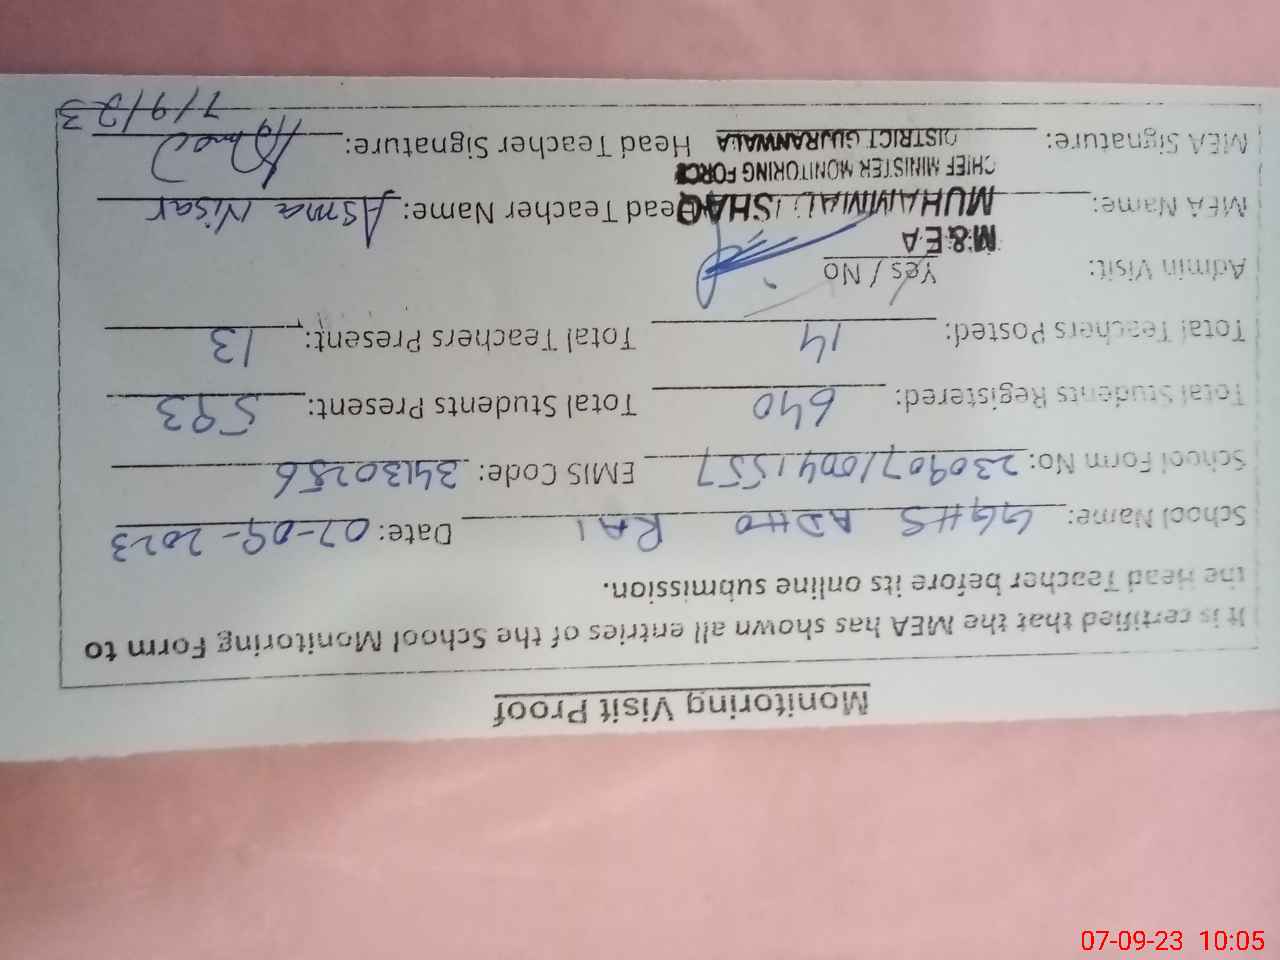 Monitoring Visit Proof
It is certified that the MEA has shown all entries of the School Monitoring Form to
the Head Teacher before its online submission.
School Name: GGHS ADHO RAI Date: 07-09-2023
School Form No: 230907/0041557 EMIS Code: 34130256
Total Students Registered: 640 Total Students Present: 593
Total Teachers Posted: 14 Total Teachers Present: 13
Admin Visit: Yes / No
M&EA
MEA Name: MUHAMMAD ISHAQ Head Teacher Name: Asma Nisar
CHIEF MINISTER MONITORING FORCE
MEA Signature: DISTRICT GUJRANWALA Head Teacher Signature:
7/9/23
07-09-23 10:05